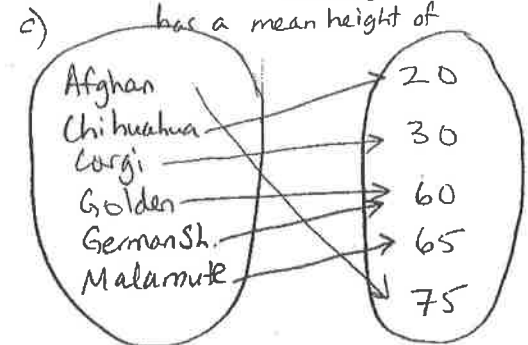 c) has a mean height of
Afghan
Chihuahua
Corgi
Golden
GermanSh.
Malamute
20
30
60
65
75